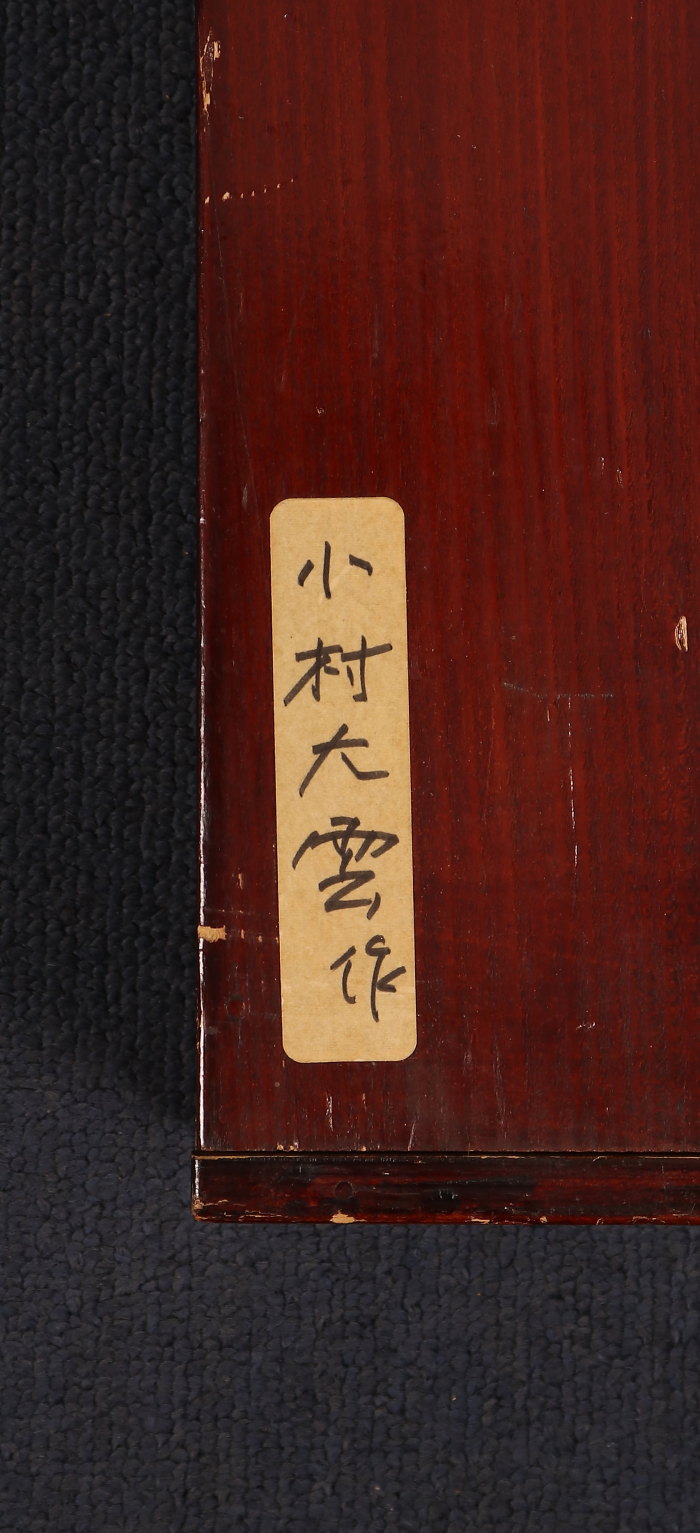 小村大雲作